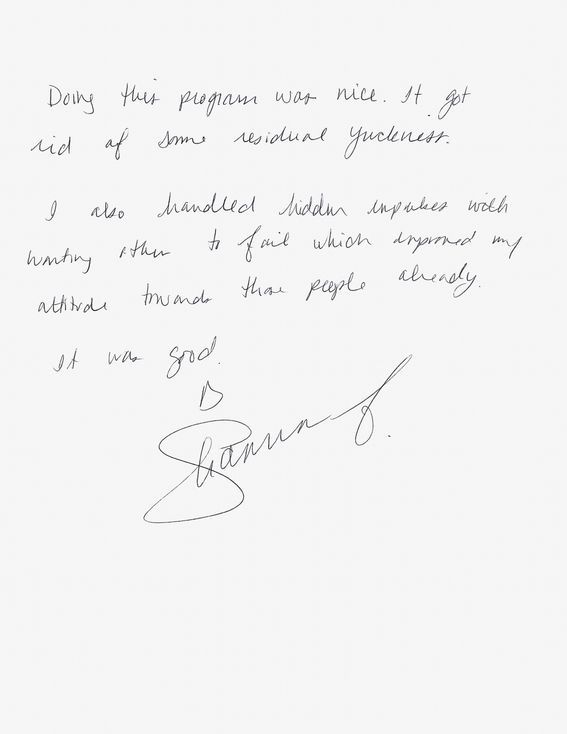 Doing this program was nice. It got
rid of some residual yuckness.
I also handled hidden impulses with
wanting others to fail which improved my
attitude towards those people already.
It was good.